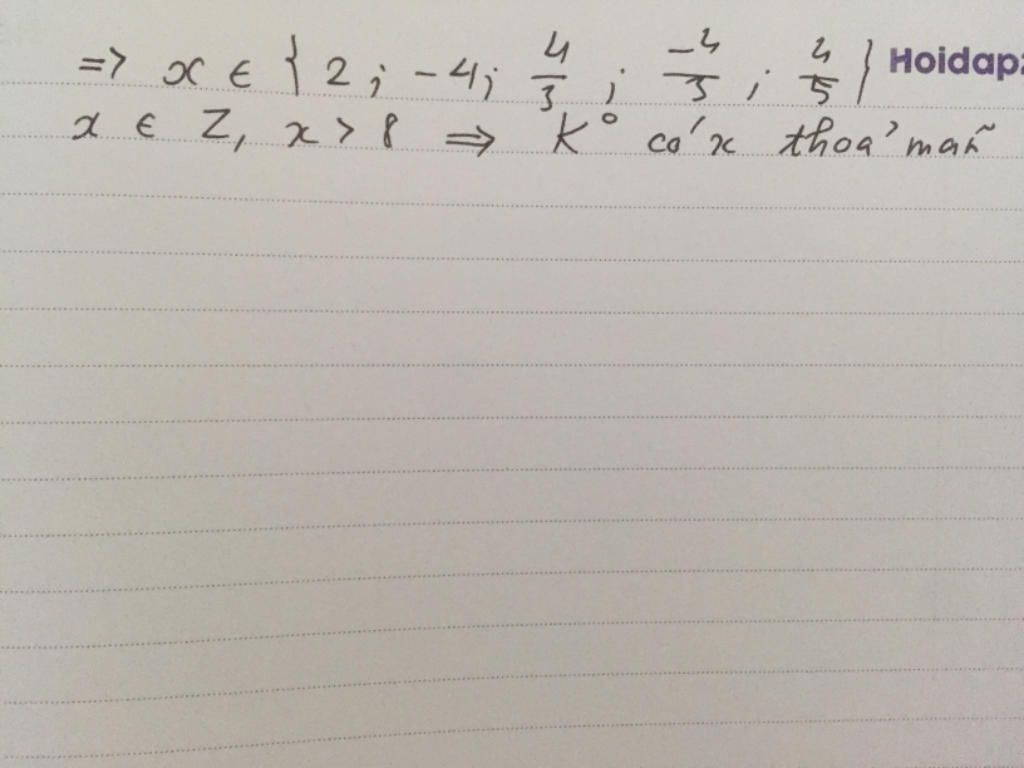 => x ∈ { 2 ; -4; 4/3 ; -4/3 ; 4/5 } Hoidap2
x ∈ Z, x > 8 => K° có x thoả mãn